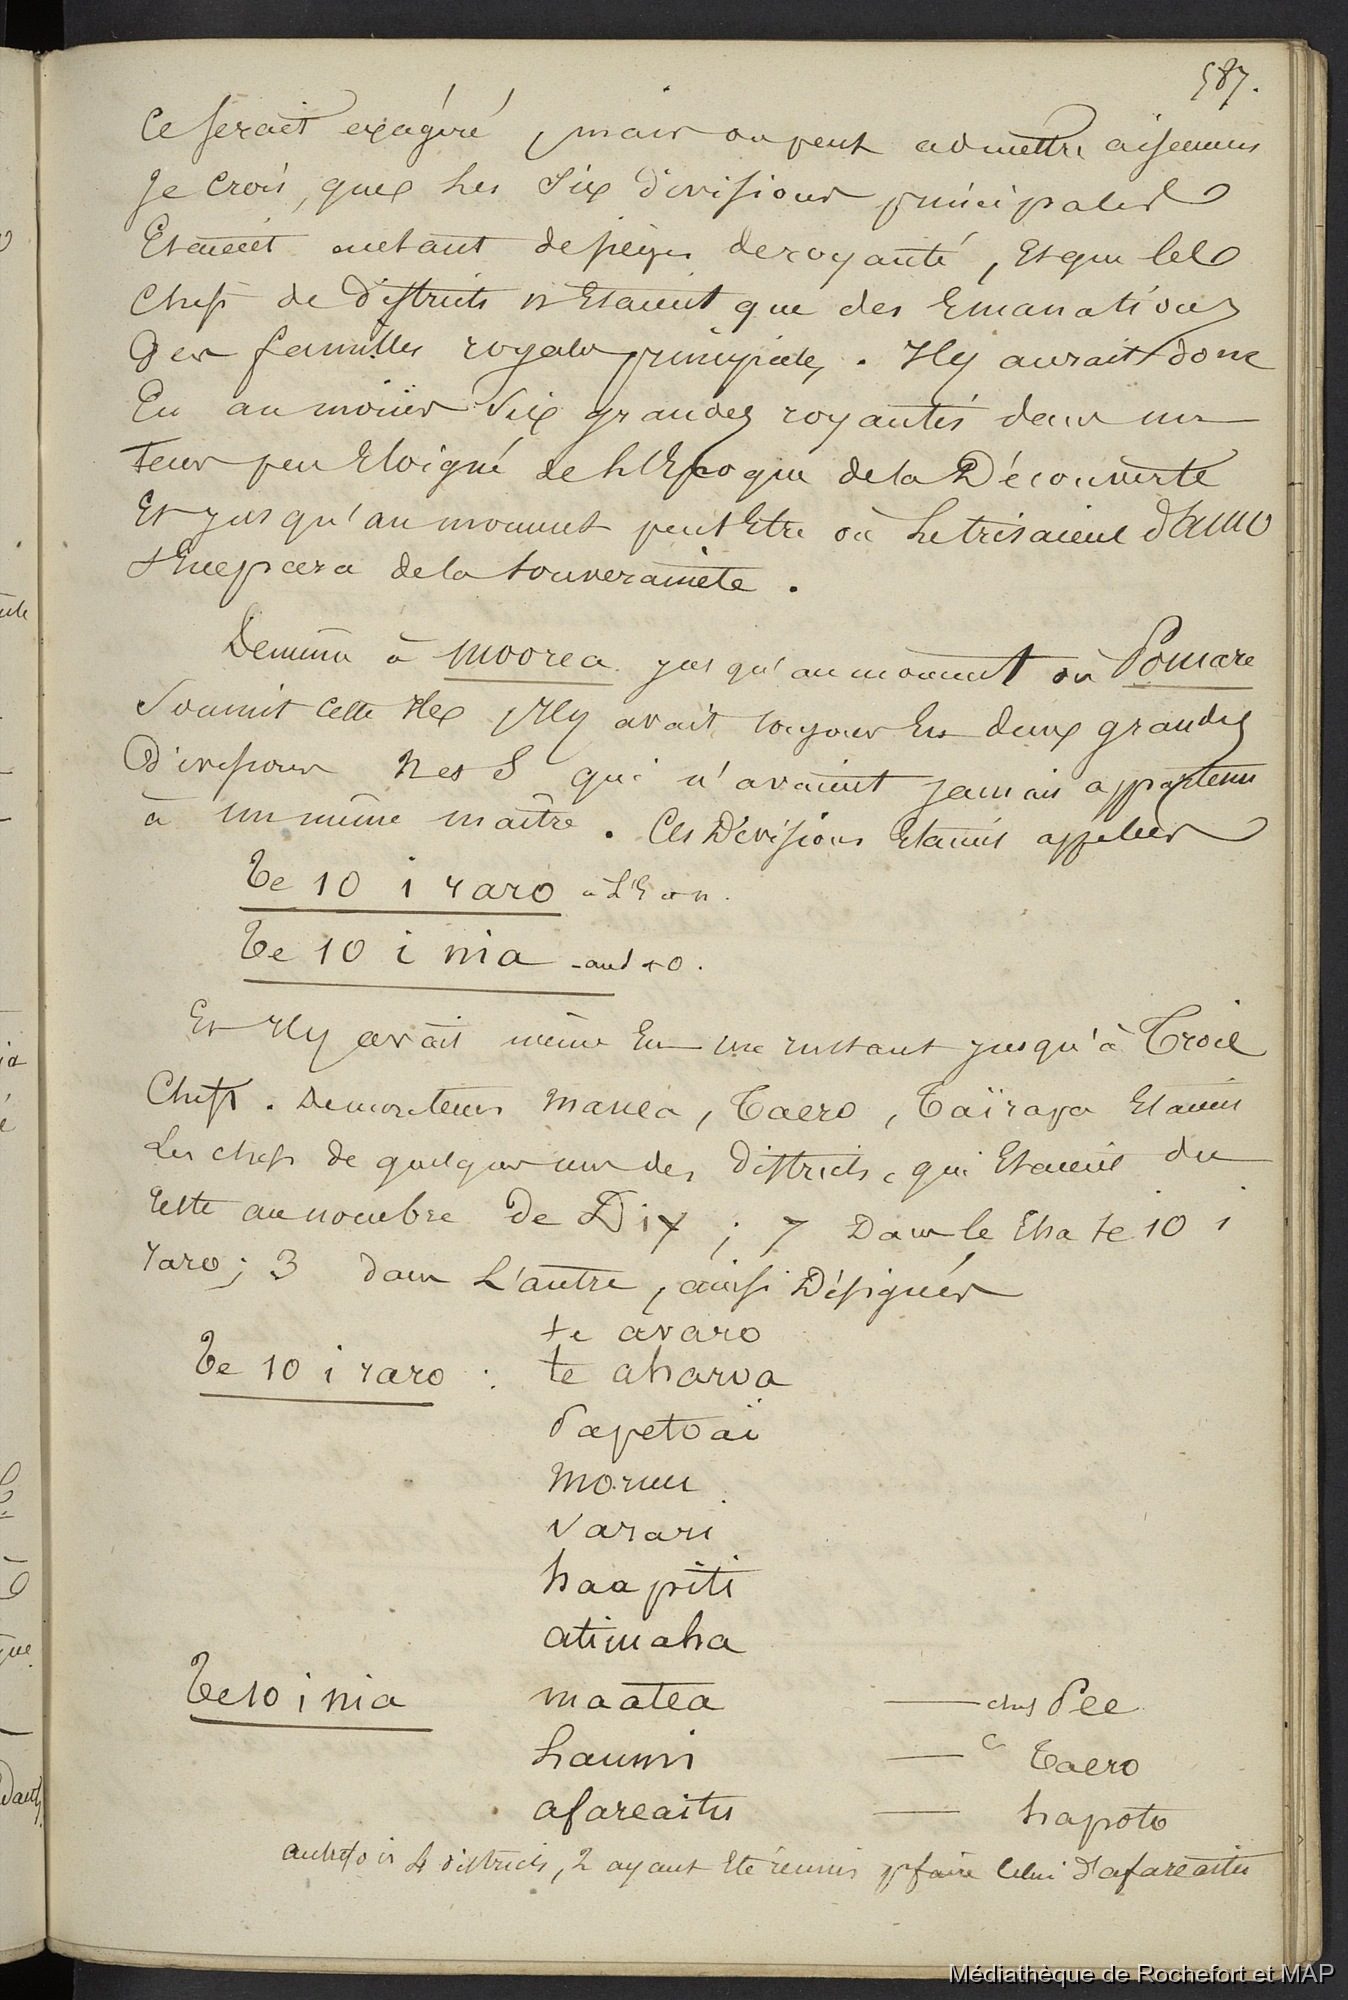 587.
Ce serait exagéré, mais on peut admettre aisement
Je crois, que les Six divisions principales
Etaient autant de sièges de royauté, Et que les
Chefs de districts n'Etaient que des Emanations
Des familles royales principales. Il y aurait donc
Eu au moins Six grandes royautés dans un
tems peu Eloigné de l'Epoque de la Découverte
Et jusqu'au moment peut Etre où le trisaieul d'amo
s'Empara de la souveraineté.
De même à Moorea jusqu'au moment où Pomare
Soumit cette Ile, Il y avait toujours Eu deux grandes
Divisions N et S qui n'avaient jamais appartenu
à un même maître. Ces Divisions Etaient appelées
Te 10 i raro
Te 10 i nia
Et Il y avait même Eu un instant jusqu'à Trois
Chefs. De mon tems Manea, Taero, Taïrapa Etaient
Les chefs de quelques uns des districts, qui Etaient du
reste au nombre de Dix ; 7 Dans le Eha te 10 i
raro ; 3 dans L'autre, ainsi Désignés
te avaro
Te 10 i raro : te aharoa
Papetoaï
Moruu
Varari
haapiti
atimaha
Te 10 i nia maatea — chef Pee
haumi — Taero
afareaitu — hapoto
autrefois 4 districts, 2 ayant Eté réunis pr faire Celui d'afareaitu
Médiathèque de Rochefort et MAP